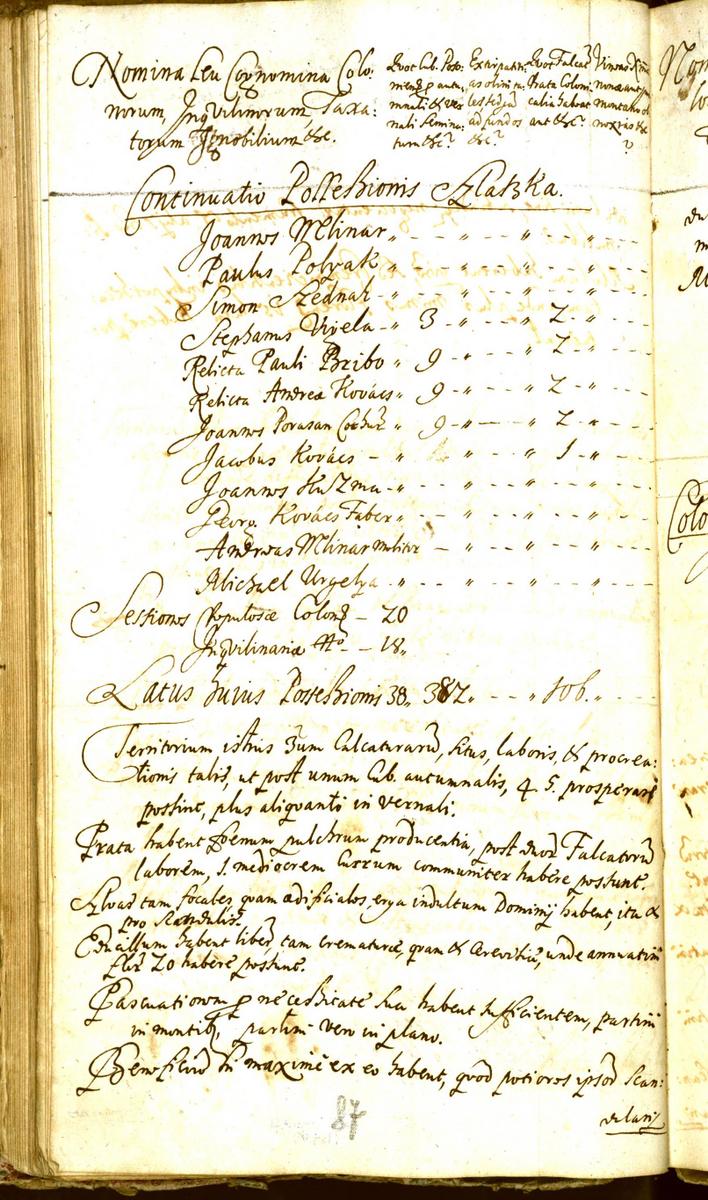 Nomina seu Cognomina Colo:
norum, Inqvilinorum Taxa:
torum Ignobilium &c.
Qvot Cub. Poso:
mens p autu,
mnali & ver
nali semina:
tum &c?
Extirpatit:
ad fundos
&c?
Qvot Falcat
Prata Coloni:
calia habeat
aut &c?
Vineas
?
Continuatio Possessionis Szlatzka.
Joannes Mlinar
Paulus Polyak
Simon Szednak
Stephanus Vigela 3 2
Relicta Pauli Bribo 9 2
Relicta Andreæ Kovács 9 2
Joannes Porasan 9 2
Jacobus Kovács 1
Joannes Kuzma
Georg. Kovács Faber
Andreas Mlinar molitor
Michael Urgelya
Sessiones Populosæ Colon 20
Inqvilinariæ No 18
Latus hujus Possessionis 38, 382, 106.
Territorium istius 3um Calcaturarū, situs, laboris, & procrea:
tionis talis, ut post unum Cub. autumnalis, 4. 5. prosperari
possint, plus aliqvanti in vernali.
Prata habent foenum pulchrum producentia, post duor Falcatorū
laborem, 1. mediocrem currum communiter habere possunt.
Sylvas tam focales, qvam ædificiales, erga indultum Dominij habent, ita &
pro Scandulis.
Educillum habent liberū, tam crematuræ, qvam & Cerevisiæ, unde annuatim
flor 20 habere possunt.
Pascuationem p necessitate sua habent sufficientem, partim
in montibq, partim vero in plano.
Beneficiū in maxime ex eo habent, qvod potiores ipsor Scan:
dularij
87